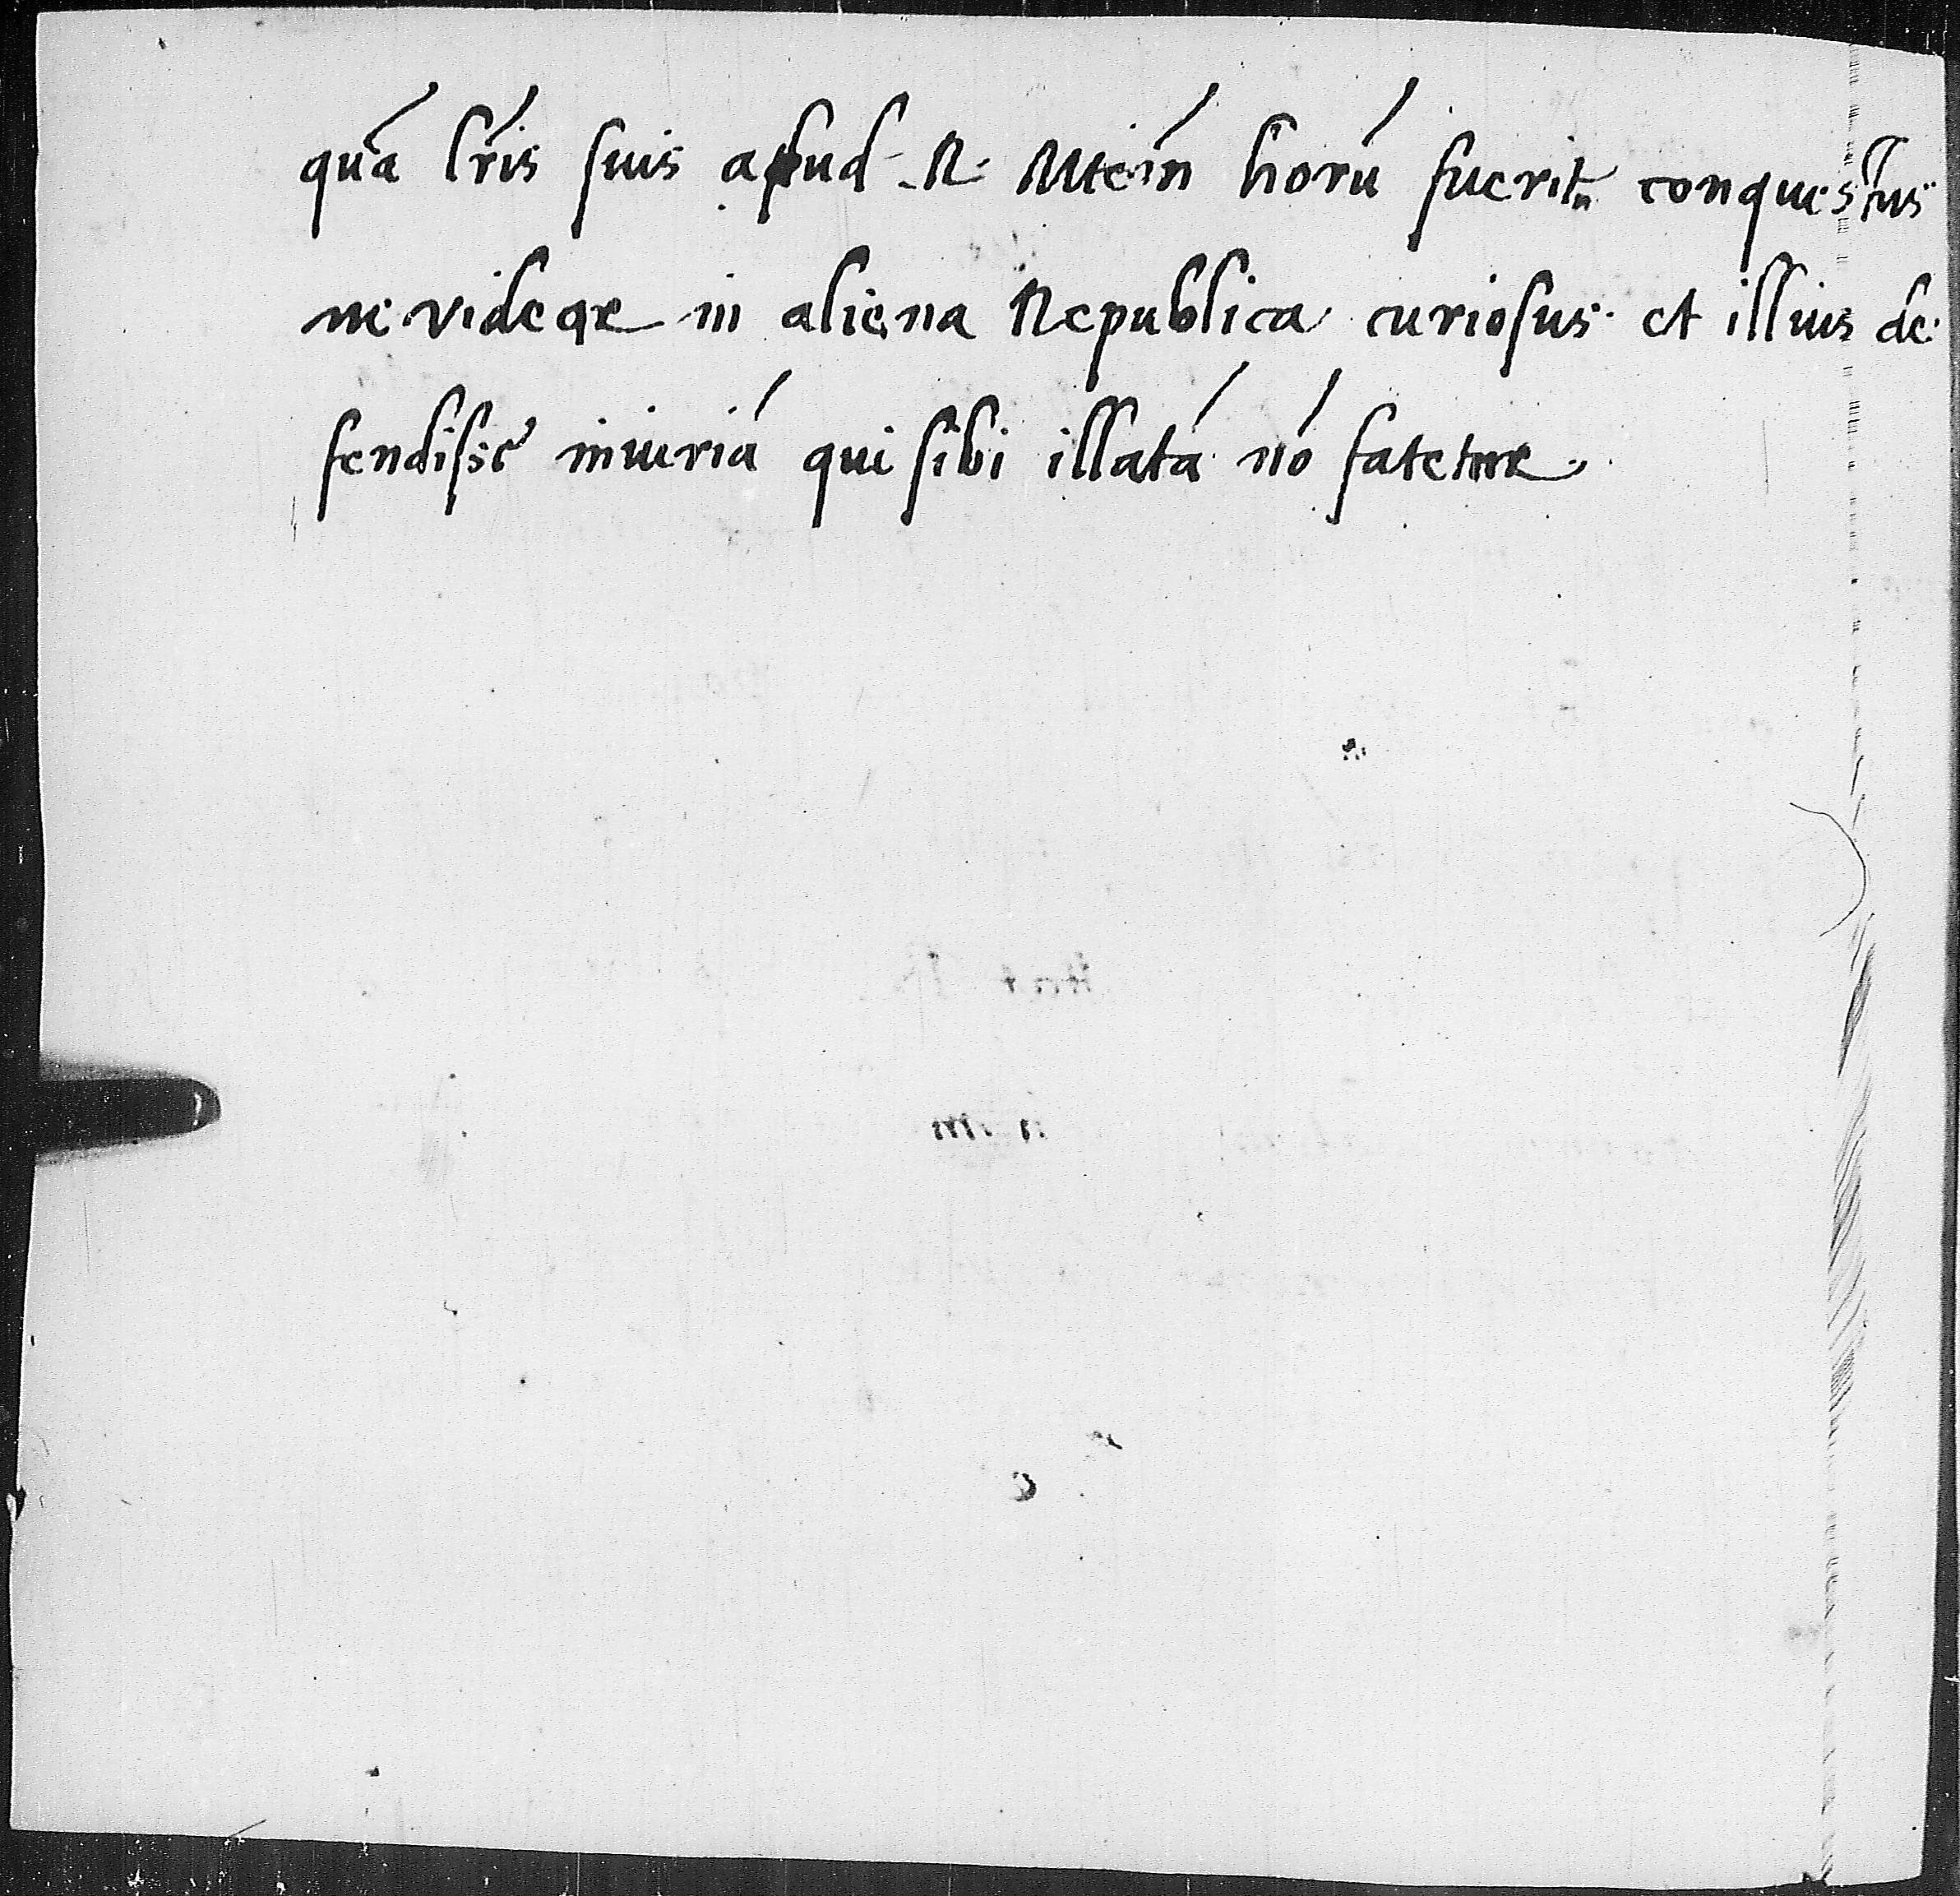 quā lr̄is suis apud R. Mtem̄ horū fuerit conquestus
ne videar in aliena Republica curiosus et illius de
fendisse iniuriā qui sibi illatā nō fatetur.